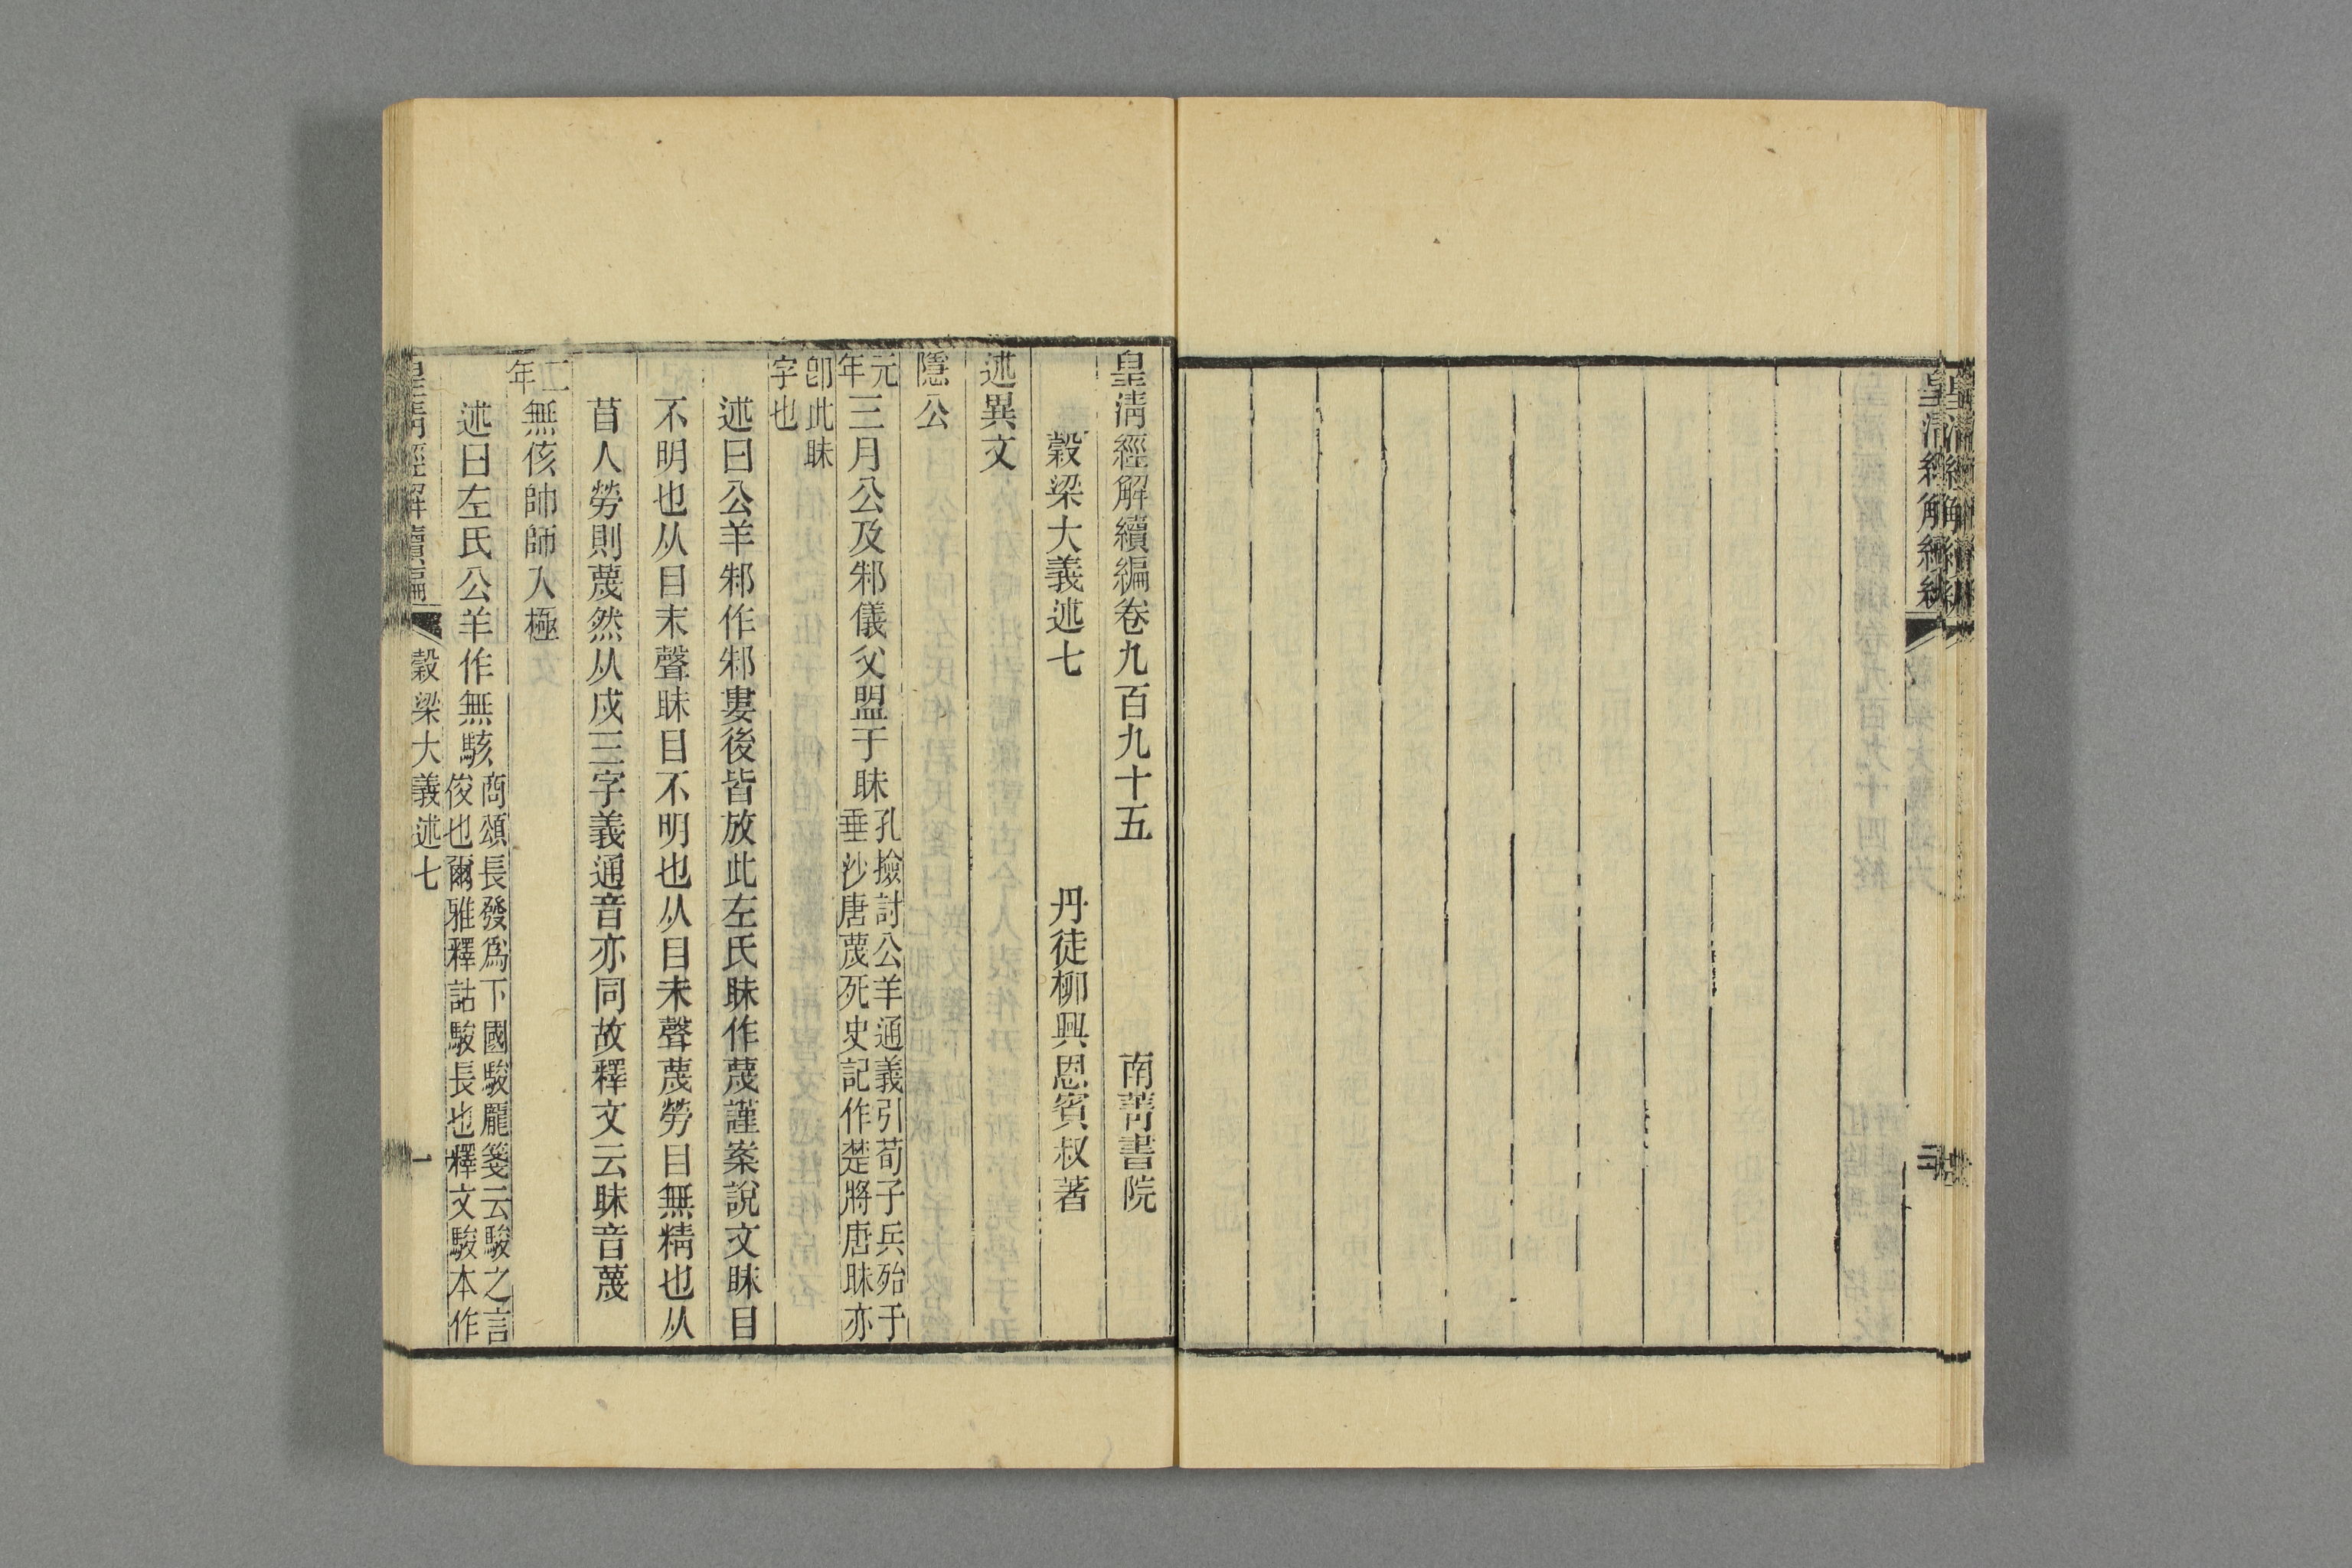 皇清經解續編
三
皇清經解續編卷九百九十五 南菁書院
穀梁大義述七 丹徒柳興恩賓叔著
述異文
隱公
元年三月公及邾儀父盟于昧孔撿討公羊通義引荀子兵殆于垂沙唐蔑死史記作楚將唐昧亦
卽此昧字也
述曰公羊邾作邾婁後皆放此左氏昧作蔑謹案說文昧目
不明也从目末聲眛目不明也从目未聲蔑勞目無精也从
苜人勞則蔑然从戍三字義通音亦同故釋文云昧音蔑
二年無侅帥師入極
述曰左氏公羊作無駭商頌長發爲下國駿厖箋云駿之言俊也爾雅釋詁駿長也釋文駿本作
皇清經解續編 穀梁大義述七 一